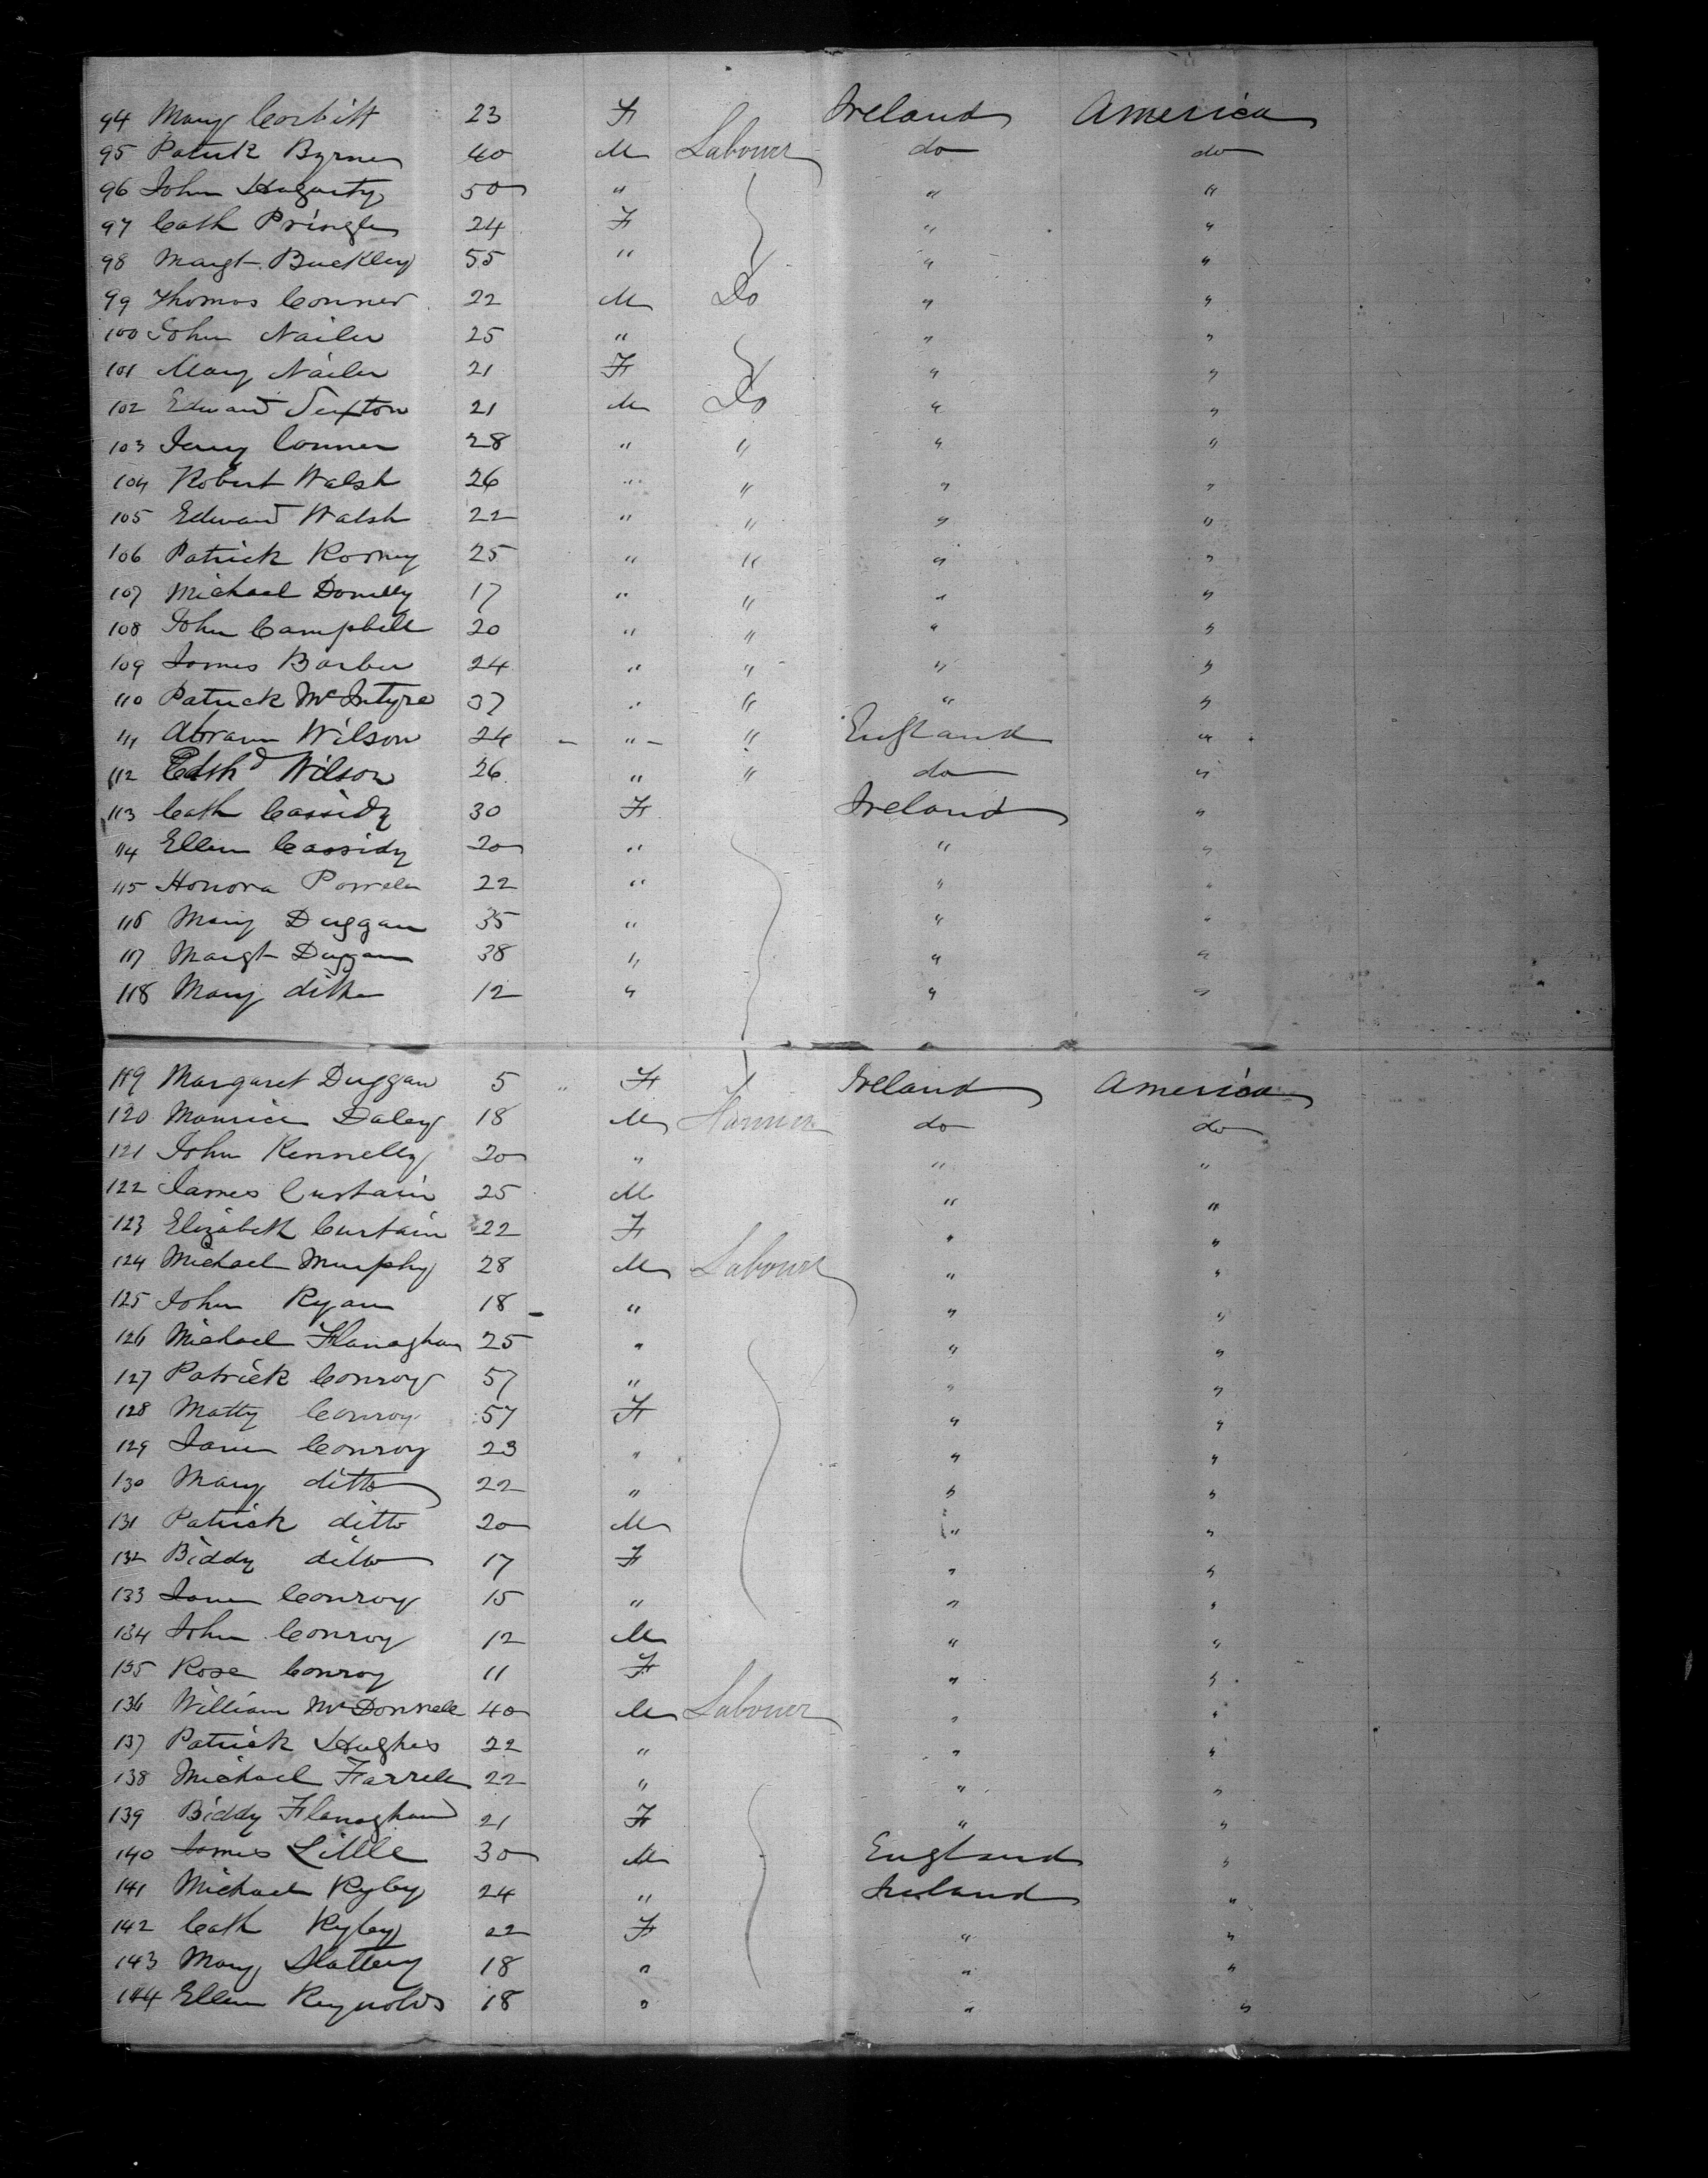 94 Mary Corbitt 23 F Ireland America
95 Patrick Byrnes 40 M Labourer do do
96 John Hagarty 50 " " "
97 Cath Pringle 24 F " "
98 Margt. Buckley 55 " " "
99 Thomas Conner 22 M Do " "
100 John Nailer 25 " " "
101 Mary Nailer 21 F " "
102 Edward Sexton 21 M Do " "
103 Jerry Conner 28 " " " "
104 Robert Walsh 26 " " " "
105 Edward Walsh 22 " " " "
106 Patrick Rooney 25 " " " "
107 Michael Donnelly 17 " " " "
108 John Campbell 20 " " " "
109 James Barber 24 " " " "
110 Patrick McIntyre 37 " " " "
111 Abram Wilson 24 - " - " England "
112 Wilson 26 " " do "
113 Cath Cassidy 30 F Ireland "
114 Ellen Cassidy 20 " " "
115 Honora Powell 22 " " "
116 Mary Duggan 35 " " "
117 Margt Duggan 38 " " "
118 Mary ditto 12 " " "
119 Margaret Duggan 5 " F Ireland America
120 Maurice Daley 18 M Farmer do do
121 John Kennelly 20 " " "
122 James Curtain 25 M " "
123 Elizabeth Curtain 22 F " "
124 Michael Murphy 28 M Labourer " "
125 John Ryan 18 - " " "
126 Michael Flanaghan 25 " " "
127 Patrick Conroy 57 " " "
128 Matty Conroy 57 F " "
129 Jane Conroy 23 " " "
130 Mary ditto 22 " " "
131 Patrick ditto 20 M " "
132 Biddy ditto 17 F " "
133 Jane Conroy 15 " " "
134 John Conroy 12 M " "
135 Rose Conroy 11 F " "
136 William McDonnell 40 M Labourer " "
137 Patrick Hughes 22 " " "
138 Michael Farrell 22 " " "
139 Biddy Flanaghan 21 F " "
140 James Little 30 M England "
141 Michael Ryley 24 " Ireland "
142 Cath Ryley 22 F " "
143 Mary Slattery 18 " " "
144 Ellen Reynolds 18 " " "